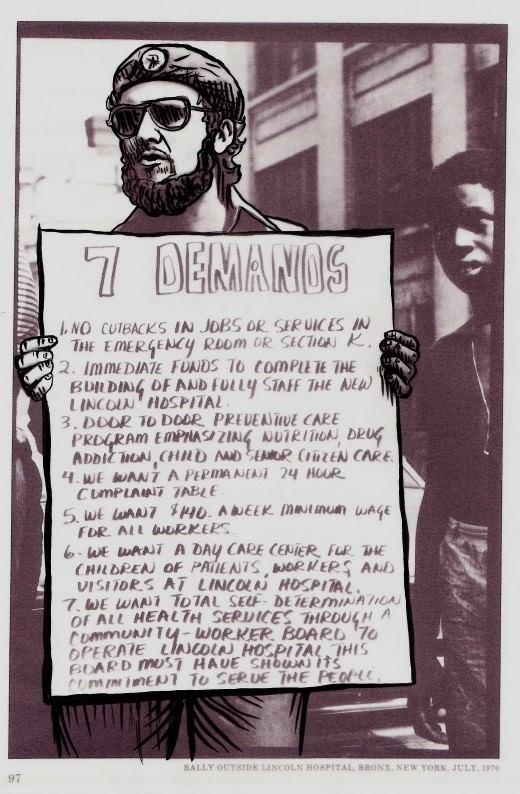 7 DEMANDS
1. NO CUTBACKS IN JOBS OR SERVICES IN
THE EMERGENCY ROOM OR SECTION K.
2. IMMEDIATE FUNDS TO COMPLETE THE
BUILDING OF AND FULLY STAFF THE NEW
LINCOLN HOSPITAL.
3. DOOR TO DOOR PREVENTIVE CARE
PROGRAM EMPHASIZING NUTRITION, DRUG
ADDICTION, CHILD AND SENIOR CITIZEN CARE.
4. WE WANT A PERMANENT 24 HOUR
COMPLAINT TABLE.
5. WE WANT $140. A WEEK MINIMUM WAGE
FOR ALL WORKERS.
6. WE WANT A DAY CARE CENTER FOR THE
CHILDREN OF PATIENTS, WORKERS, AND
VISITORS AT LINCOLN HOSPITAL.
7. WE WANT TOTAL SELF-DETERMINATION
OF ALL HEALTH SERVICES THROUGH A
COMMUNITY-WORKER BOARD TO
OPERATE LINCOLN HOSPITAL. THIS
BOARD MUST HAVE SHOWN ITS
COMMITMENT TO SERVE THE PEOPLE.
RALLY OUTSIDE LINCOLN HOSPITAL, BRONX, NEW YORK, JULY, 1970
97